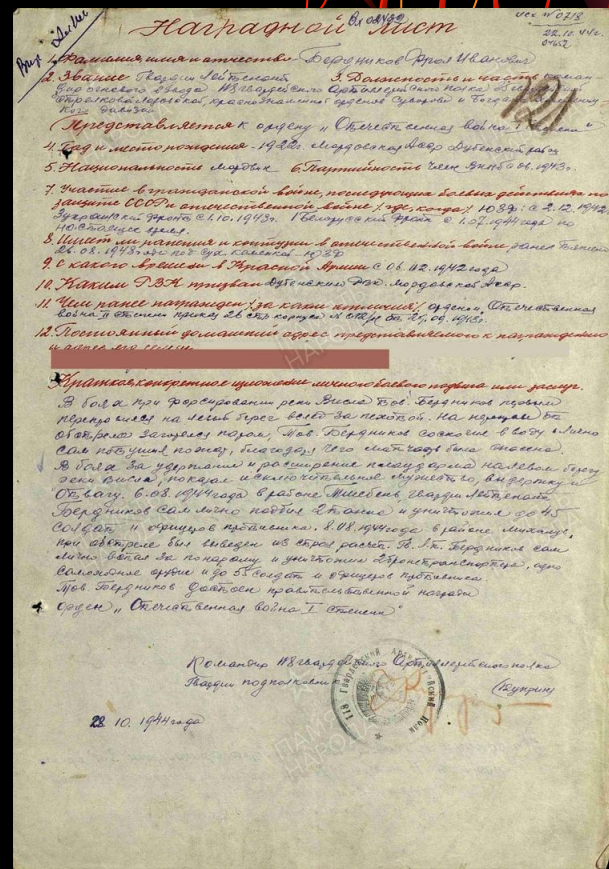 Наградной лист
22.10.44г.
1. Фамилия, имя и отчество - Бердников Фрол Иванович
2. Звание Гвардии Лейтенант 3. Должность и часть
огневого взвода 118 гвардейского Артиллерийского полка
стрелковой Краснознаменной орденов Суворова и Богдана
дивизии
Представляется к ордену „Отечественная война I степени"
4. Год и место рождения - Мордовская Асср Дубенский район
5. Национальность Мордвин 6. Партийность член ВКП(б) 1943г.
7. Участие в гражданской войне, последующих боевых действиях по
защите СССР и отечественной войне /где, когда/ ЮЗФ: с 2.12.1942
3 Украинский фронт с 1.10.1943г. 1 Белорусский Фронт с 1.07.1944 года по
настоящее время.
8. Имеет ли ранения и контузии в отечественной войне
26.08.1943г. ЮЗФ
9. С какого времени в Красной Армии с 06.02.1942 года
10. Каким РВК призван Дубенским Мордовской Асср.
11. Чем ранее награжден /за какие отличия/ орденом „Отечественная
война II степени приказ 26 стр. корпуса № от 29.09.1943г.
12. Постоянный домашний адрес представляемого к награждению
и адрес его семьи
Краткое конкретное изложение личного боевого подвига или заслуг.
В боях при форсировании реки Висла тов. Бердников первым
переправился на левый берег вслед за пехотой. На переправе от
обстрела загорелся паром, Тов. Бердников соскочив в воду лично
сам потушил пожар, благодаря чего матчасть была спасена.
В боях за удержание и расширение плацдарма на левом берегу
реки Висла, показал исключительное мужество, выдержку и
отвагу. 6.08.1944 года в районе гвардии лейтенант
Бердников сам лично подбил 2 танка и уничтожил до 45
солдат и офицеров противника. 8.08.1944 года в районе
при обстреле был выведен из строя расчет. Гв. л-т. Бердников сам
лично встал за панораму и уничтожил 2 бронетранспортера, одно
самоходное орудие и до 55 солдат и офицеров противника.
Тов. Бердников достоин правительственной награды
орден „Отечественная война I степени"
Командир 118 гвардейского Артиллерийского полка
Гвардии подполковник
28.10.1944 года
ПАМЯТЬ
НАРОДА